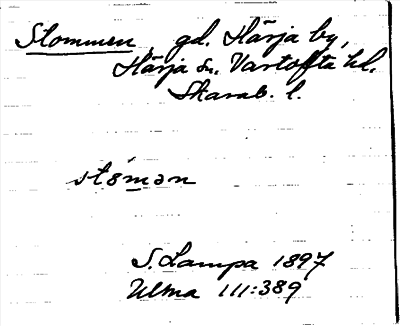 Stommen, gd. Härja by,
Härja sn. Vartofta hd.
Skarab. l.
stómən
S. Lampa 1897
Ulma 111:389